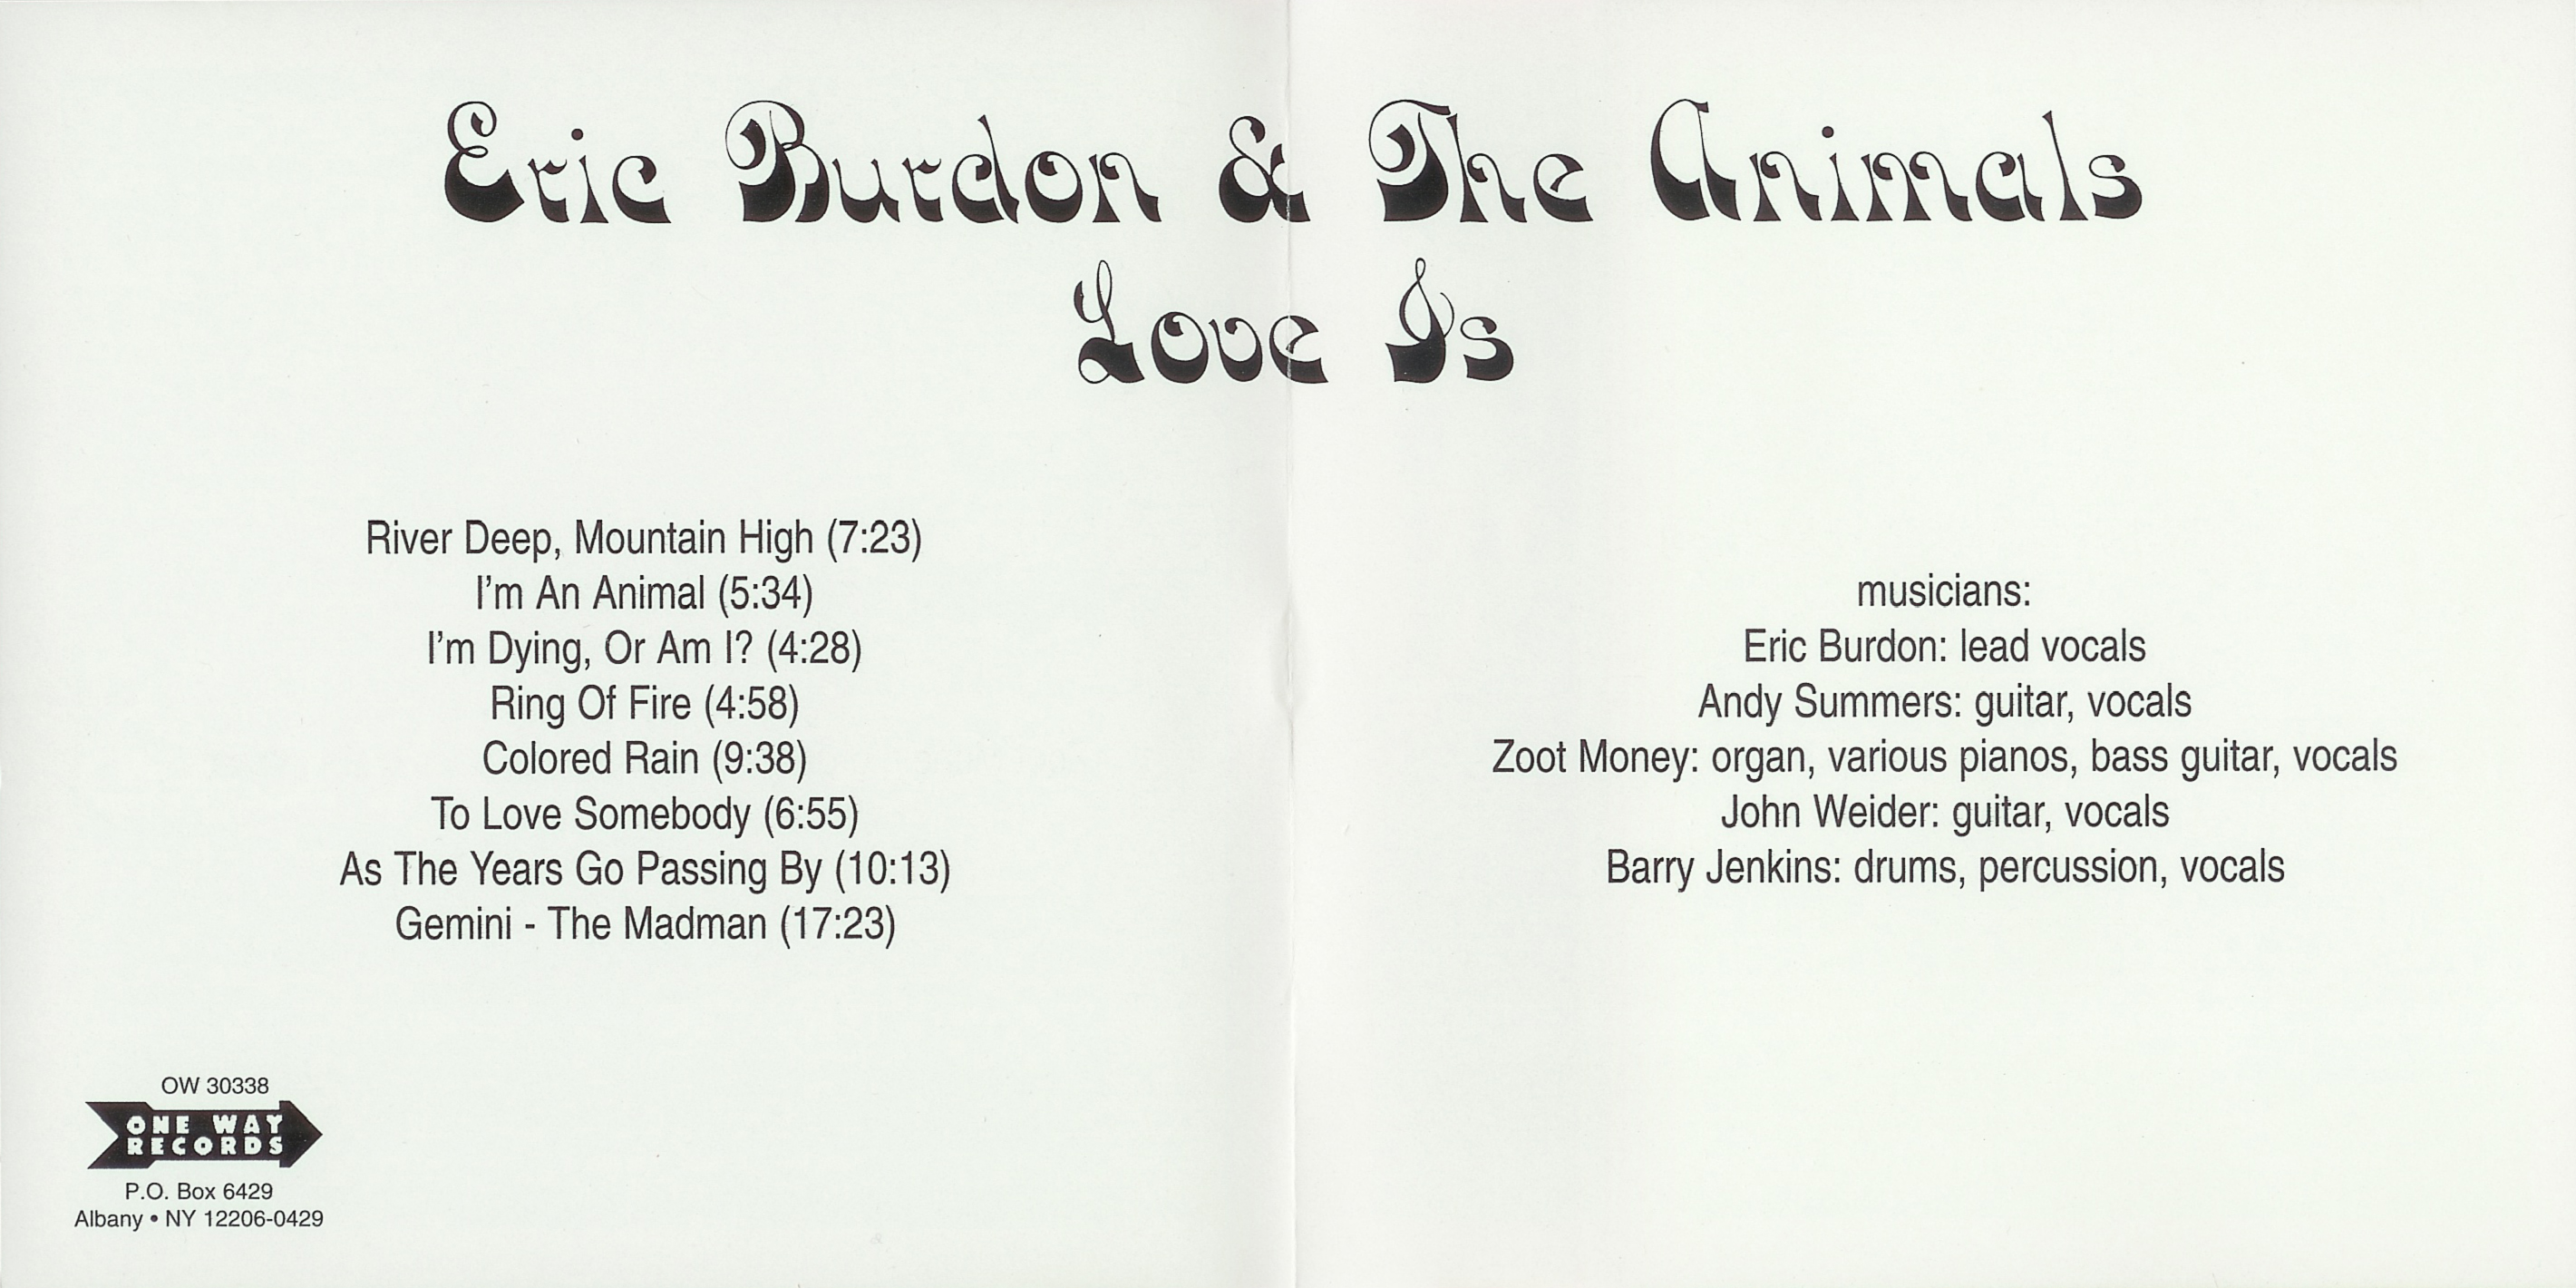 Eric Burdon & The Animals
Love Is
River Deep, Mountain High (7:23)
I'm An Animal (5:34)
I'm Dying, Or Am I? (4:28)
Ring Of Fire (4:58)
Colored Rain (9:38)
To Love Somebody (6:55)
As The Years Go Passing By (10:13)
Gemini - The Madman (17:23)
musicians:
Eric Burdon: lead vocals
Andy Summers: guitar, vocals
Zoot Money: organ, various pianos, bass guitar, vocals
John Weider: guitar, vocals
Barry Jenkins: drums, percussion, vocals
OW 30338
ONE WAY
RECORDS
P.O. Box 6429
Albany • NY 12206-0429